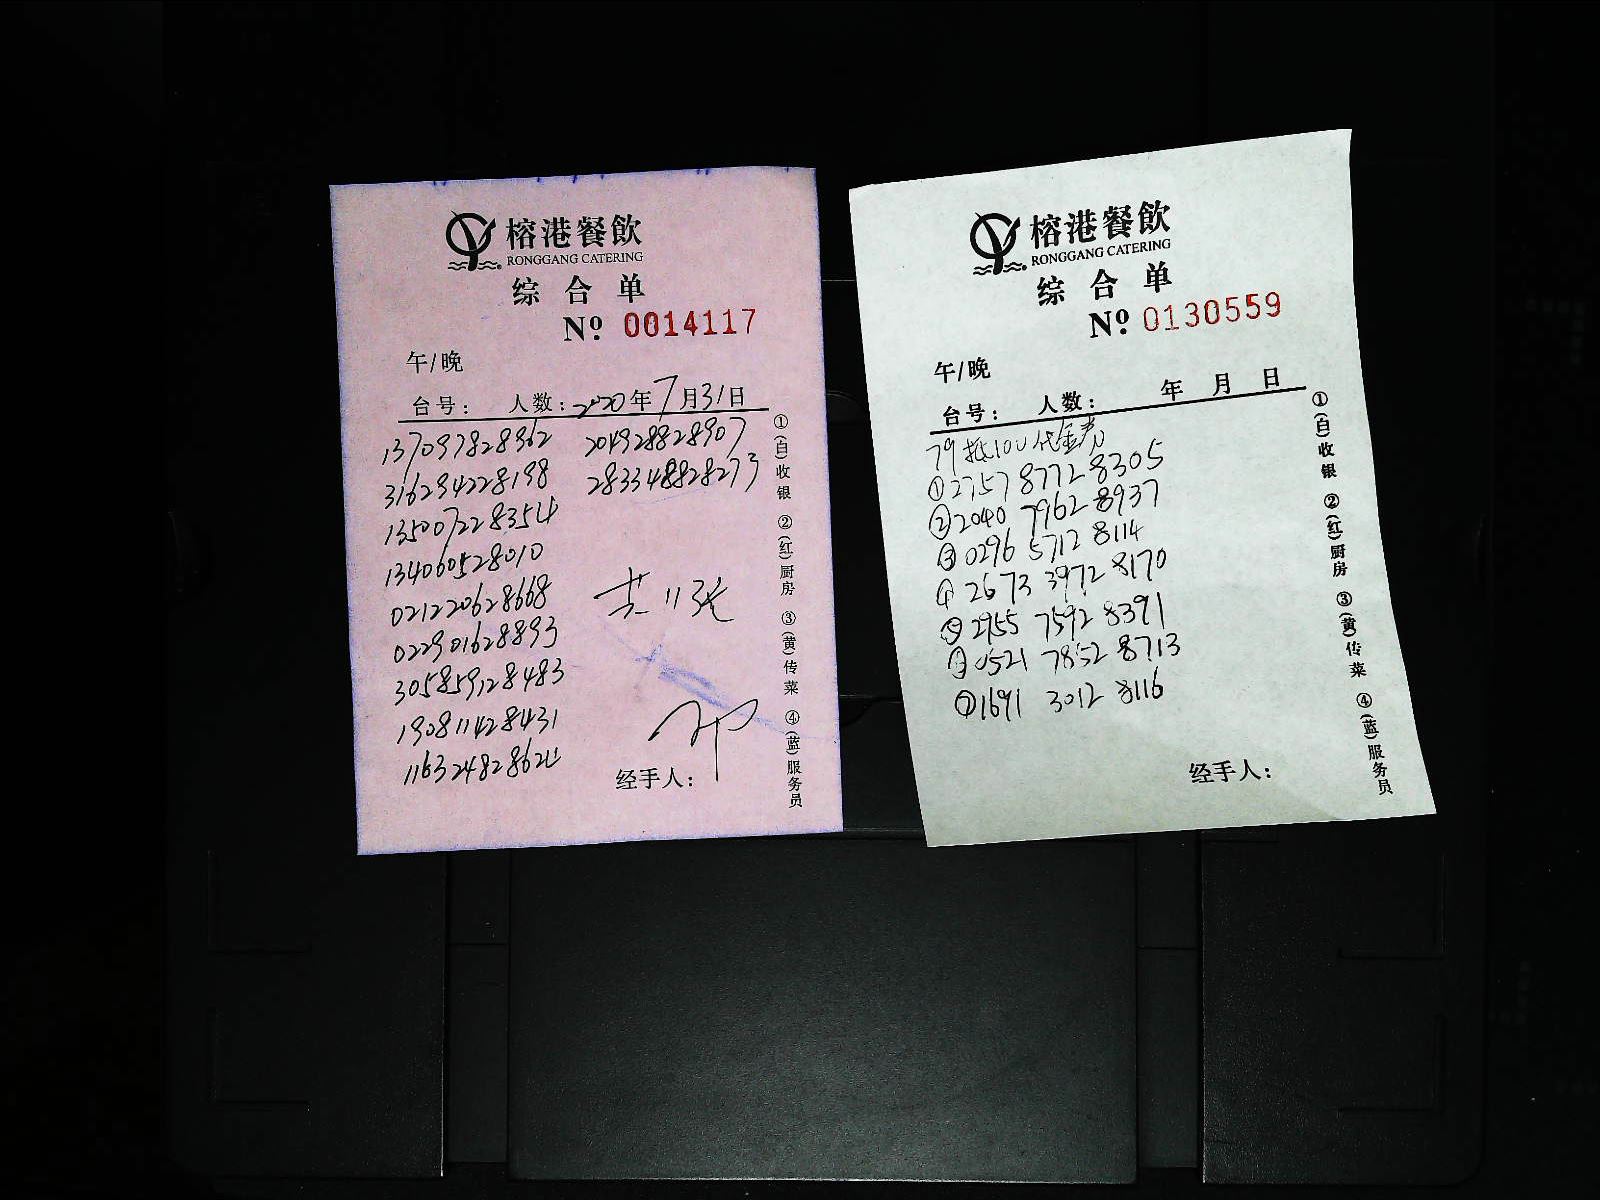 榕港餐飲
RONGGANG CATERING
综合单
Nº 0014117
午/晚
台号： 人数： 2020年7月31日
137097828962 204928828907
316294228198 283348828273
135007228354
134060528010
021220628668
022901628893
305859128483
190811428431
116324828624
共11张
经手人：
①(白)收银 ②(红)厨房 ③(黄)传菜 ④(蓝)服务员
榕港餐飲
RONGGANG CATERING
综合单
Nº 0130559
午/晚
台号： 人数： 年 月 日
79抵100代金券
①2757 8772 8305
②2040 7962 8937
③0296 5712 8114
④2673 3972 8170
⑤2955 7592 8391
⑥0521 7852 8713
⑦1691 3012 8116
经手人：
①(白)收银 ②(红)厨房 ③(黄)传菜 ④(蓝)服务员